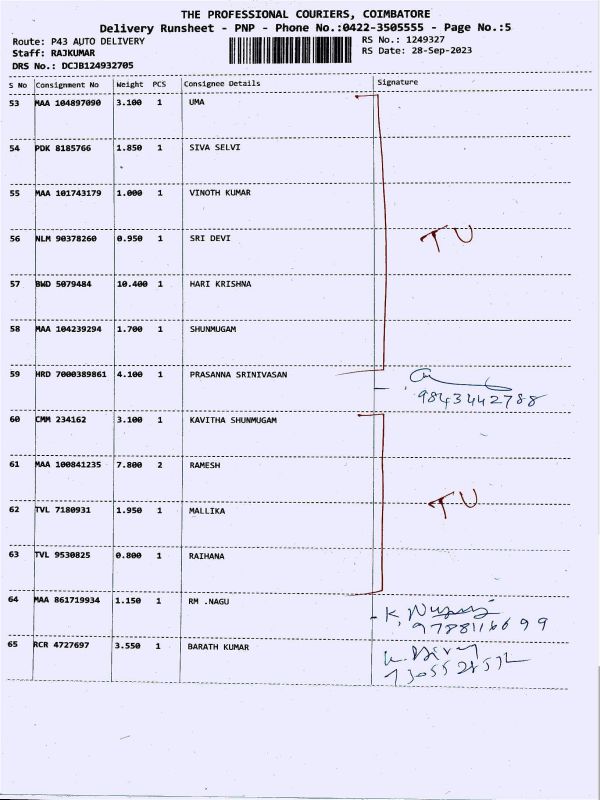 THE PROFESSIONAL COURIERS, COIMBATORE
Delivery Runsheet - PNP - Phone No.:0422-3505555 - Page No.:5
Route: P43 AUTO DELIVERY RS No.: 1249327
Staff: RAJKUMAR RS Date: 28-Sep-2023
DRS No.: DCJB124932705
S No Consignment No Weight PCS Consignee Details Signature
53 MAA 104897090 3.100 1 UMA
54 PDK 8185766 1.850 1 SIVA SELVI
55 MAA 101743179 1.000 1 VINOTH KUMAR
56 NLM 90378260 0.950 1 SRI DEVI TU
57 BWD 5079484 10.400 1 HARI KRISHNA
58 MAA 104239294 1.700 1 SHUNMUGAM
59 HRD 7000389861 4.100 1 PRASANNA SRINIVASAN
9843442788
60 CMM 234162 3.100 1 KAVITHA SHUNMUGAM
61 MAA 100841235 7.800 2 RAMESH
TU
62 TVL 7180931 1.950 1 MALLIKA
63 TVL 9530825 0.800 1 RAIHANA
64 MAA 861719934 1.150 1 RM .NAGU
65 RCR 4727697 3.550 1 BARATH KUMAR